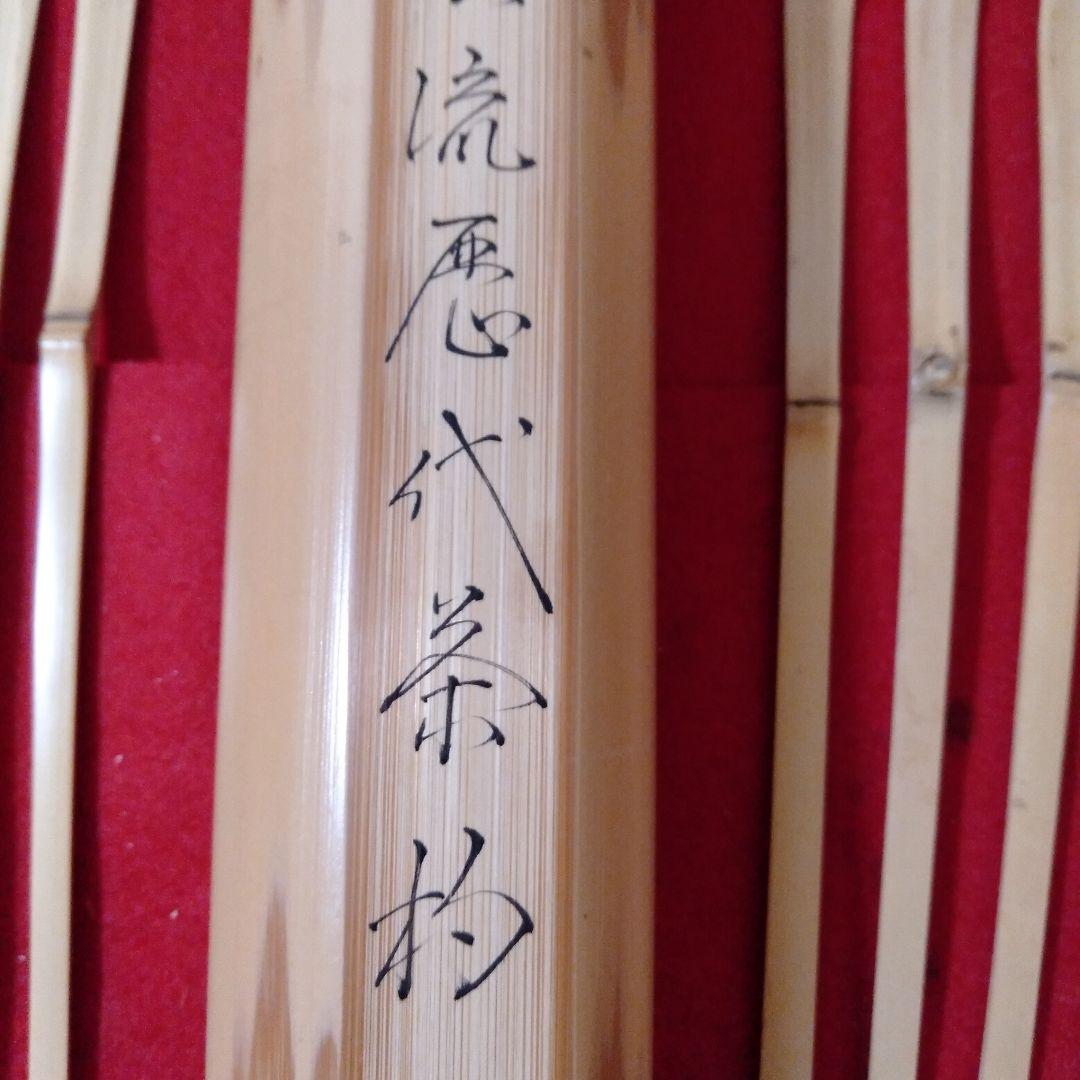 流歴代茶杓